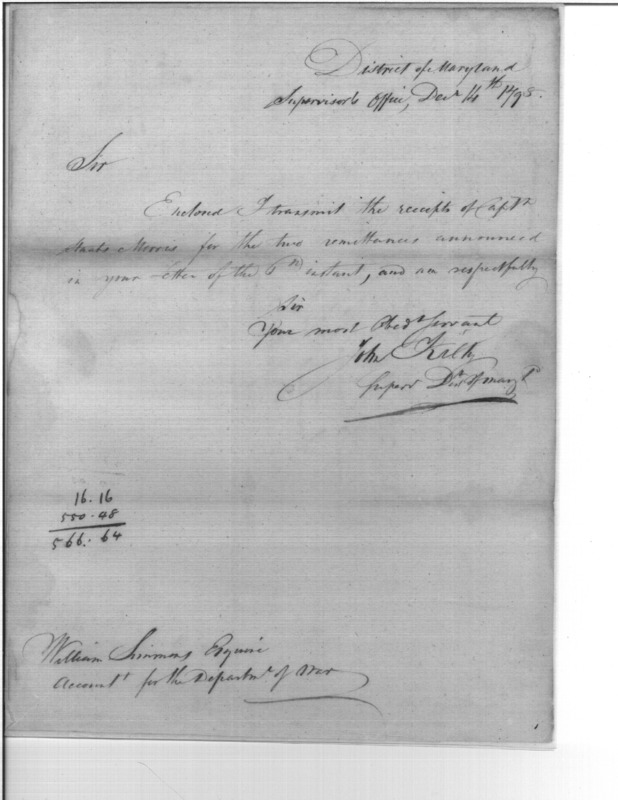 District of Maryland
Supervisor's Office, Decr 14th 1798.
Sir
Enclosed I transmit the receipts of Captn
Staats Morris for the two remittances announced
in your Letter of the 6th instant, and am respectfully
Sir
Your most Obedt Servant
John Kilty
Superr Dist of Maryld
16.16
550.48
566.64
William Simmons Esquire
Accountt for the Departmt of War